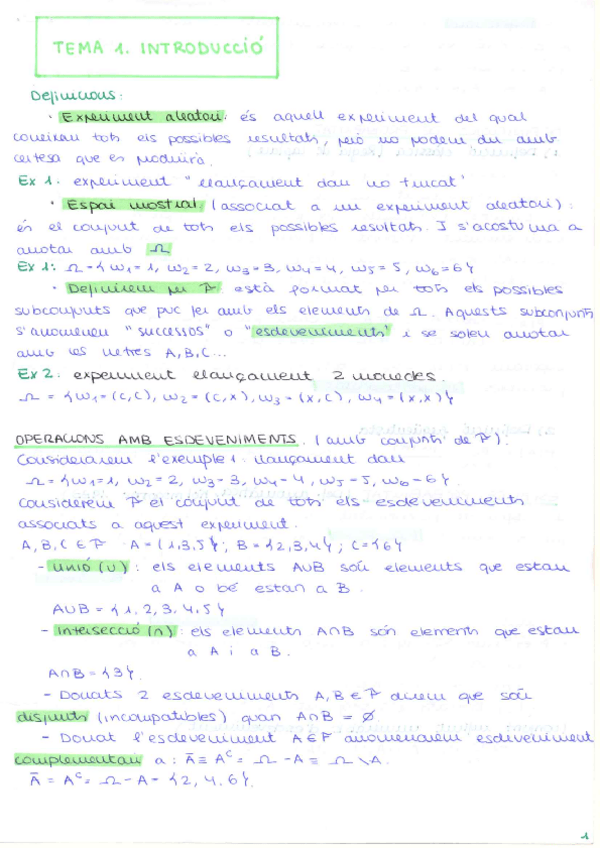 TEMA 1. INTRODUCCIÓ
Definicions:
· Experiment aleatori: és aquell experiment del qual
coneixem tots els possibles resultats, però no podem dir amb
certesa que es produirà.
Ex 1: experiment "llançament dau no trucat"
· Espai mostral (associat a un experiment aleatori):
és el conjunt de tots els possibles resultats. I s'acostuma a
anotar amb Ω
Ex 1: Ω = {ω1 = 1, ω2 = 2, ω3 = 3, ω4 = 4, ω5 = 5, ω6 = 6}
· Definirem per P: està format per tots els possibles
subconjunts que puc fer amb els elements de Ω. Aquests subconjunts
s'anomenen "successos" o "esdeveniments" i se solen anotar
amb les lletres A, B, C...
Ex 2: experiment llançament 2 monedes.
Ω = {ω1 = (c,c), ω2 = (c,x), ω3 = (x,c), ω4 = (x,x)}
OPERACIONS AMB ESDEVENIMENTS. (amb conjunts de P).
Considerarem l'exemple 1. llançament dau
Ω = {ω1 = 1, ω2 = 2, ω3 = 3, ω4 = 4, ω5 = 5, ω6 = 6}
Considerem P el conjunt de tots els esdeveniments
associats a aquest experiment.
A, B, C ∈ P A = {1,3,5}; B = {2,3,4}; C = {6}
- Unió (∪): els elements A∪B són elements que estan
a A o bé estan a B.
A∪B = {1, 2, 3, 4, 5}
- Intersecció (∩): els elements A∩B són elements que estan
a A i a B.
A∩B = {3}.
- Donats 2 esdeveniments A, B ∈ P direm que són
disjunts (incompatibles) quan A∩B = ∅.
- Donat l'esdeveniment A ∈ P anomenarem esdeveniment
complementari a: Ā ≡ Aᶜ = Ω - A = Ω \ A.
Ā = Aᶜ = Ω - A = {2, 4, 6}.
1